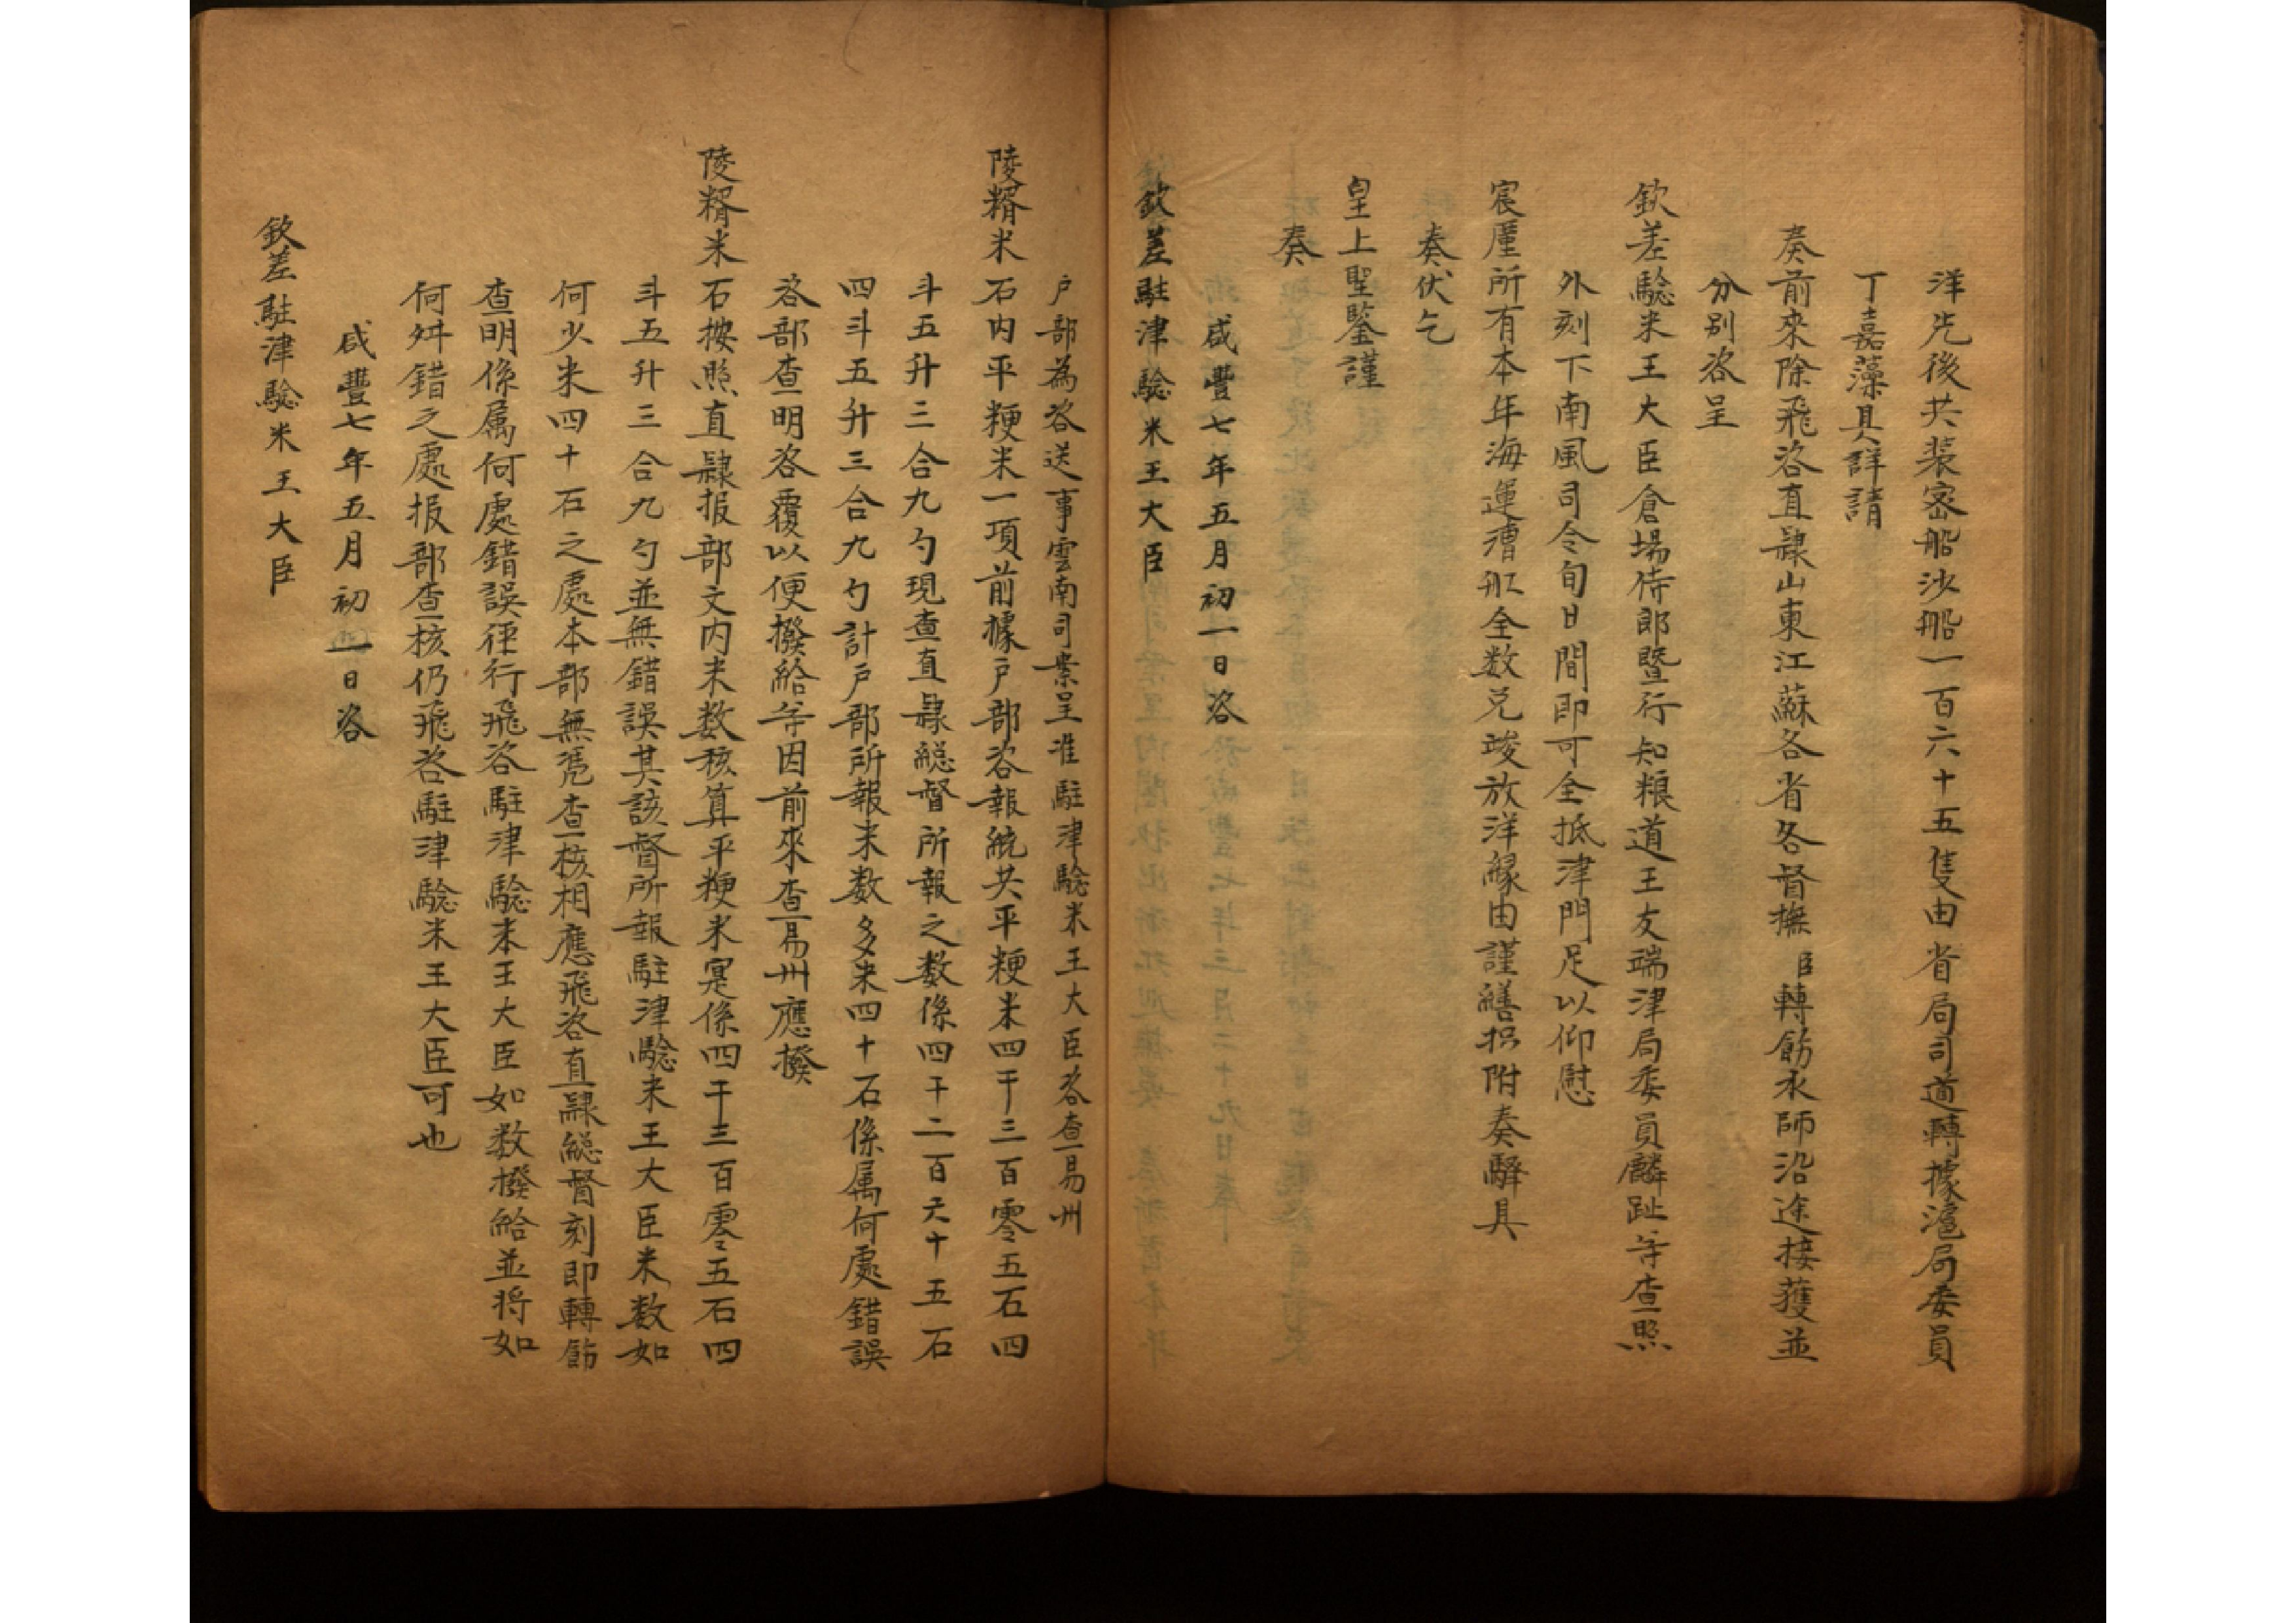 洋先後共装蛋船沙船一百六十五隻由省局司道轉據滬局委員
丁嘉藻具詳請
奏前來除飛咨直隸山東江蘇各省各督撫臣轉飭水師沿途接護並
分別咨呈
欽差驗米王大臣倉場侍郎暨行知粮道王友端津局委員麟趾等查照
外刻下南風司令旬日間即可全抵津門足以仰慰
宸厪所有本年海運漕船全数兑竣放洋緣由謹繕摺附奏驛具
奏伏乞
皇上聖鑒謹
奏
咸豐七年五月初一日咨
欽差駐津驗米王大臣
户部為咨送事雲南司案呈准駐津驗米王大臣咨查易州
陵糈米石内平粳米一項前據户部咨報統共平粳米四千三百零五石四
斗五升三合九勺現查直隸総督所報之数係四千二百六十五石
四斗五升三合九勺計户部所報米数多米四十石係属何處錯誤
咨部查明咨覆以便撥給等因前來查易州應撥
陵糈米石按照直隸报部文内米数核算平粳米寔係四千三百零五石四
斗五升三合九勺並無錯誤其該督所報駐津驗米王大臣米数如
何少米四十石之處本部無凴查核相應飛咨直隸総督刻即轉飭
查明係属何處錯誤徑行飛咨駐津驗米王大臣如数撥給並将如
何舛錯之處报部查核仍飛咨駐津驗米王大臣可也
咸豐七年五月初一日咨
欽差駐津驗米王大臣